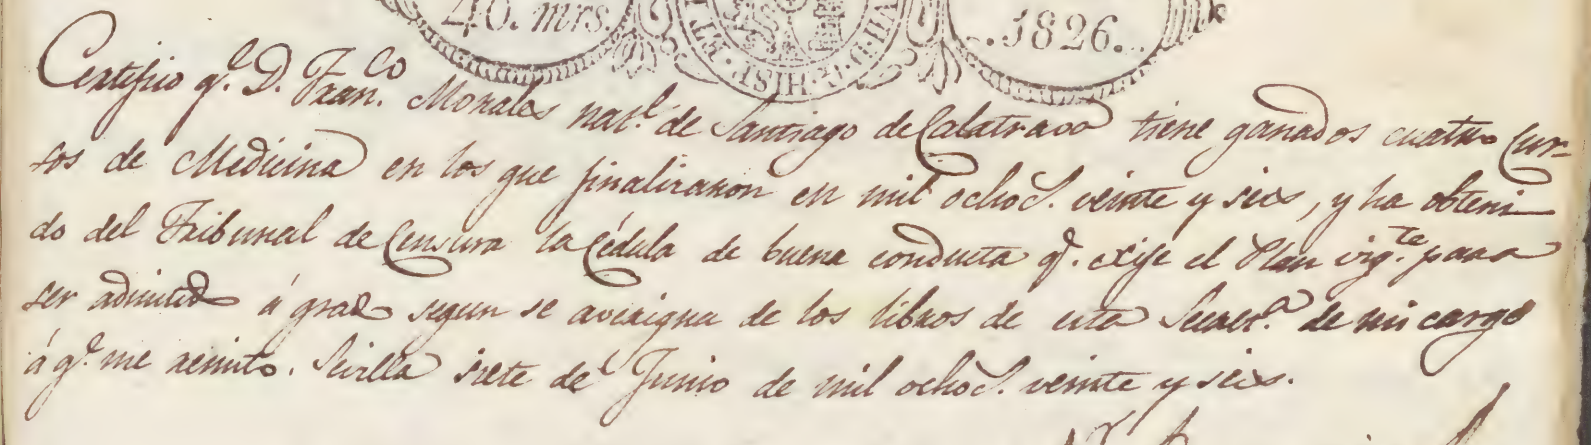 40. mrs.
1826.
HISP.
Certifico q.e D. Fran.co Morales nat.l de Santiago de Calatrava tiene ganados cuatro Cur-
sos de Medicina en los que finalizaron en mil ochoc.s veinte y seis, y ha obteni-
do del Tribunal de Censura la Cédula de buena conducta q.e exije el Plan vig.te para
ser admitido á grado segun se averigua de los libros de esta Secret.a de mi cargo
á q.e me remito. Sevilla siete de Junio de mil ochoc.s veinte y seis.